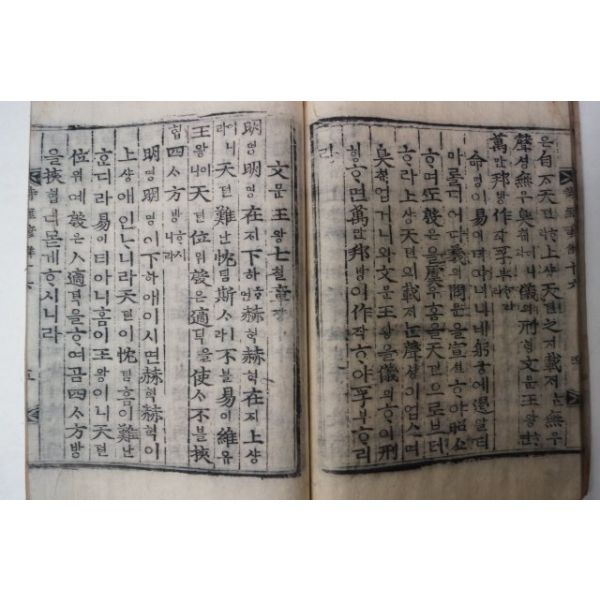 은自ᄌᆞ天텬라上샹天텬之지載ᄌᆡ는無무
聲셩無무臭ᄎᆔ儀의刑형文문王왕
萬만邦방作작孚부ᄒᆞ리라
命명이易이티아니ᄒᆞ니네躬궁애遏알티
마롤디어다義의問문을宣션ᄒᆞ야昭쇼
ᄒᆞ며ᄯᅩ殷은을虞우홈을天텬으로브터
ᄒᆞ라上샹天텬의載ᄌᆡ는聲셩이업스며
臭ᄎᆔ업거니와文문王왕을儀의ᄒᆞ야刑
형ᄒᆞ면萬만邦방이作작ᄒᆞ야孚부ᄒᆞ리
라
文문王왕七칠章쟝
明명明명在ᄌᆡ下하赫혁赫혁在ᄌᆡ上샹
이니라天텬難난忱침斯ᄉᆞㅣ라不블易이維유
王왕이니天텬位위殷은適뎍을使ᄉᆞ不블挾
협四ᄉᆞ方방ᄒᆞ시니라
明명明명이下하애이시면赫혁赫혁이
上샹애인ᄂᆞ니라天텬이忱침홈이難난
ᄒᆞᆫ디라易이티아니홈이王왕이니天텬
位위예殷은ㅅ適뎍을ᄒᆞ여곰四ᄉᆞ方방
을挾협디몯게ᄒᆞ시니라